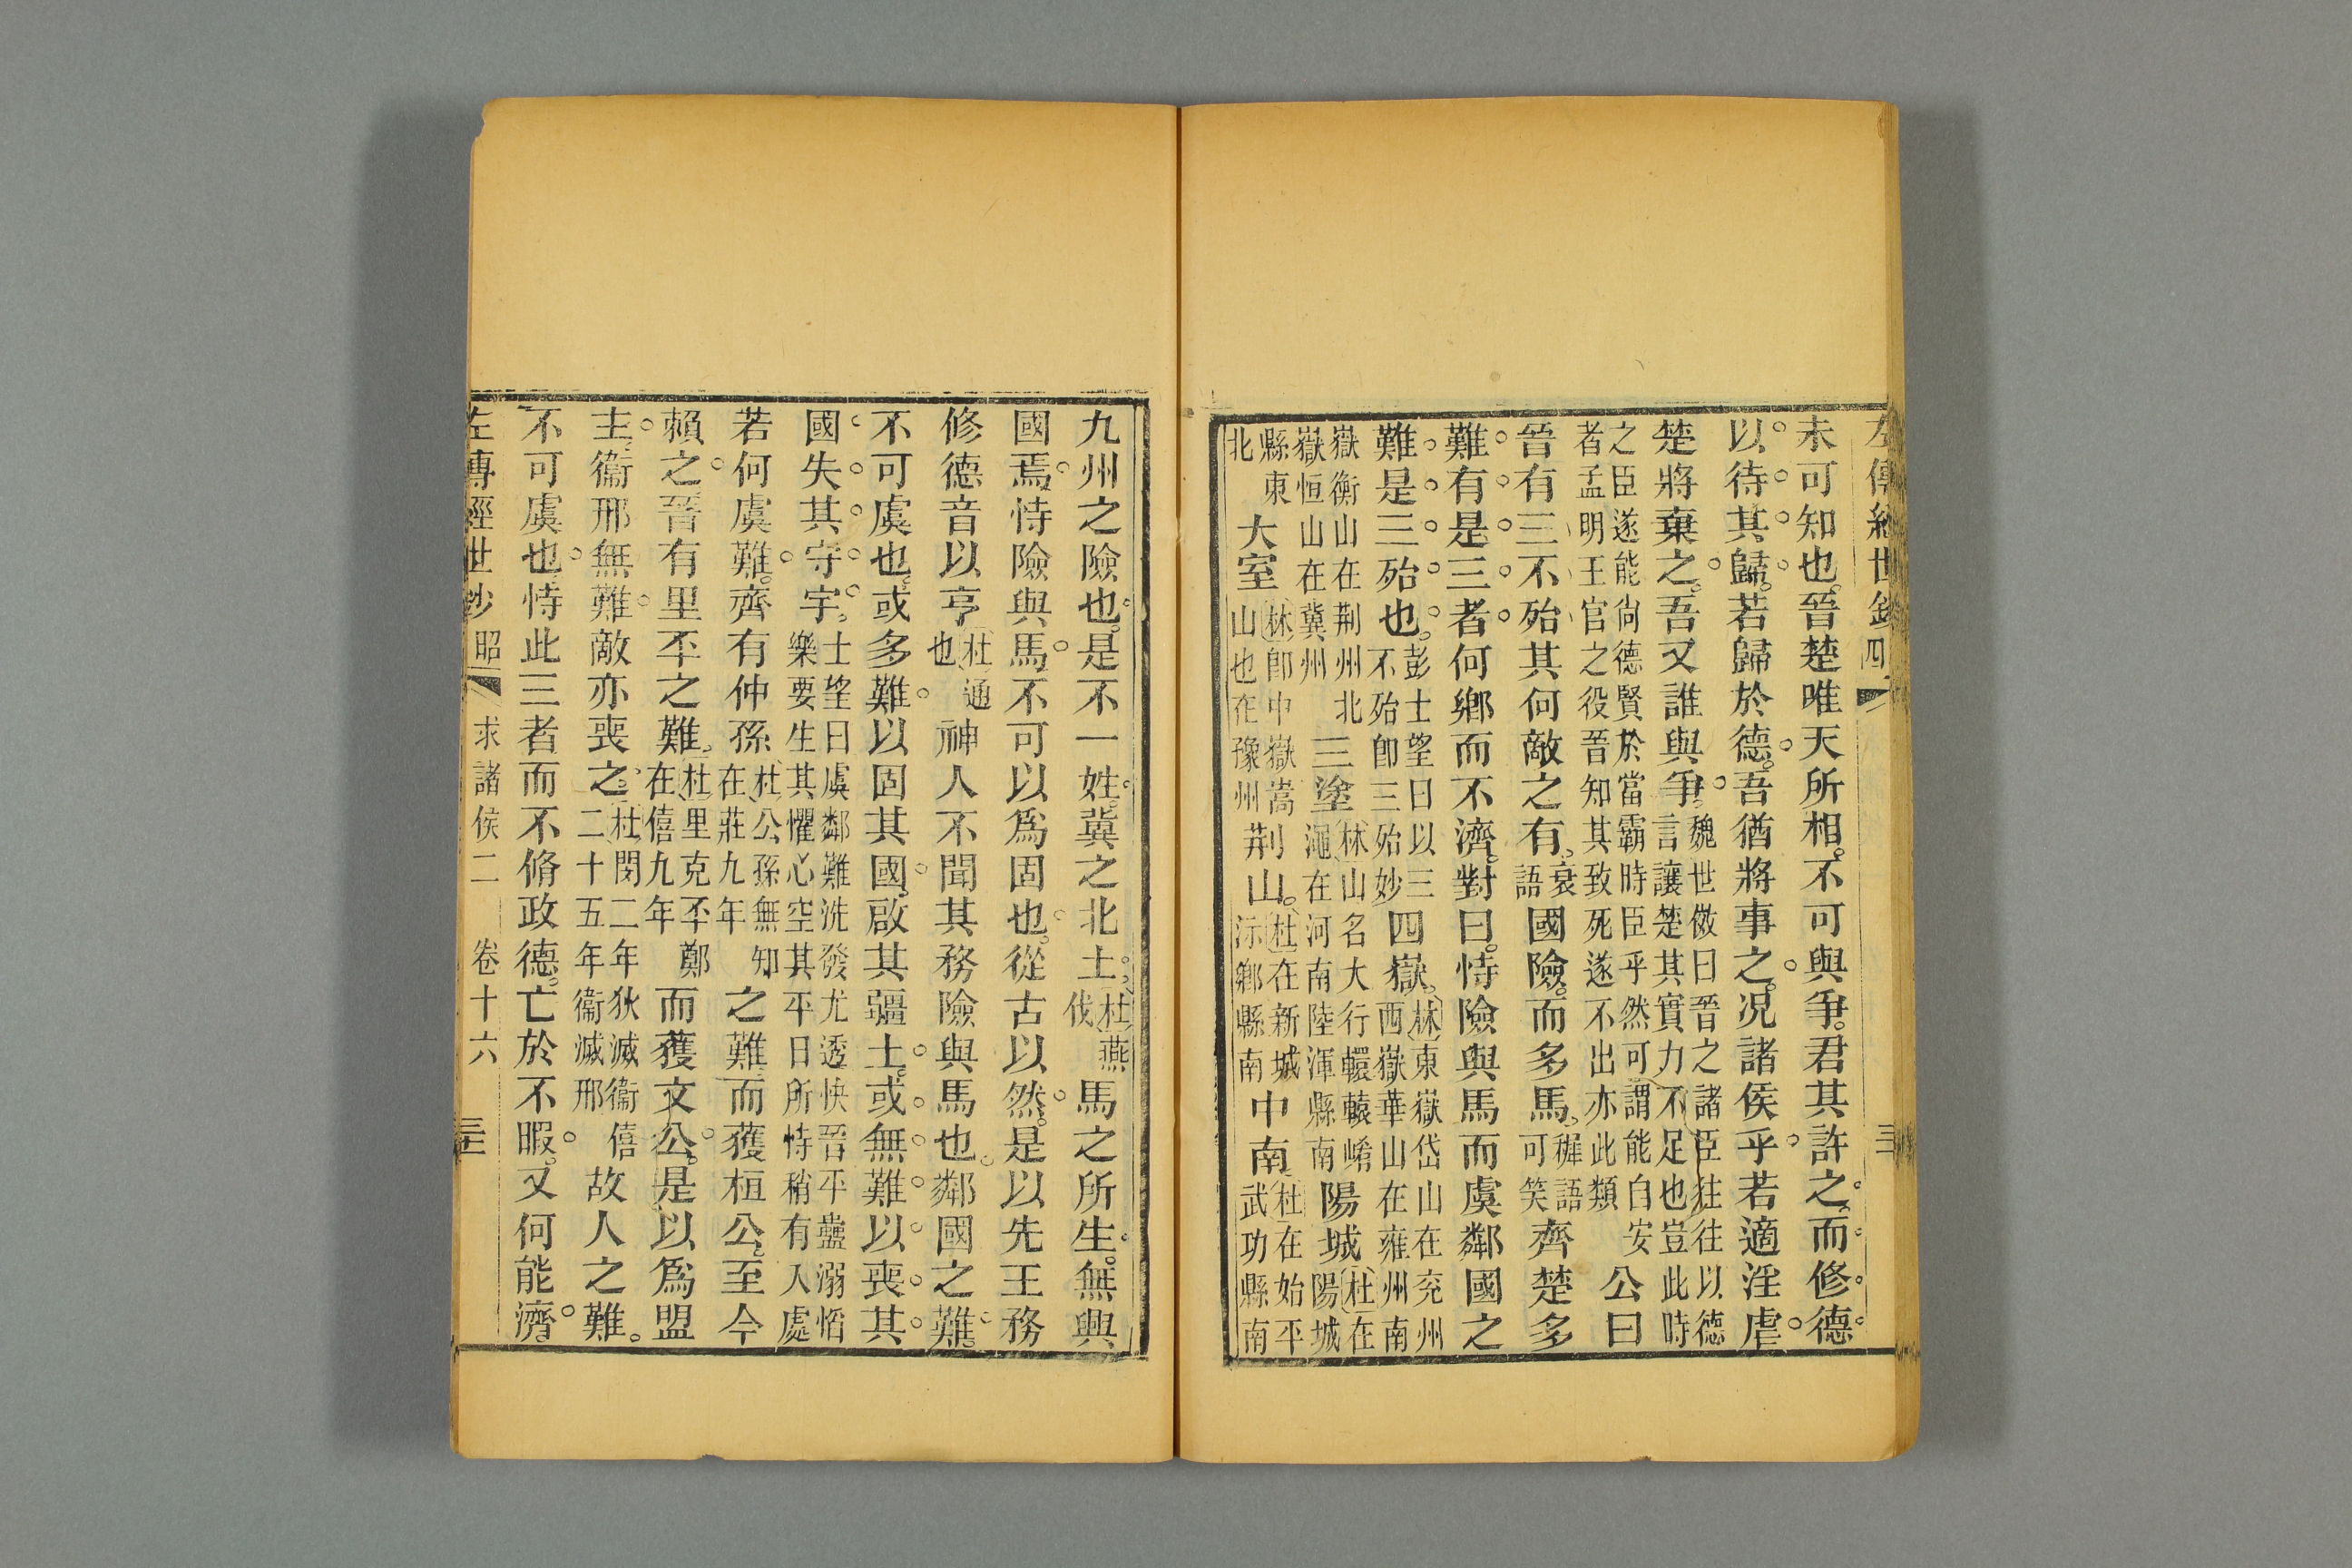 左傳經世鈔 四 三
未可知也。晉楚唯天所相。不可與爭。君其許之。而修德
以待其歸。若歸於德。吾猶將事之。况諸侯乎。若適淫虐
楚將棄之。吾又誰與爭。魏世傚曰晉之諸臣往往以德
言讓楚其實力不足也豈此時
之臣遂能尚德賢於當霸時臣乎然可謂能自安
者孟明王官之役晉知其致死遂不出亦此類
公曰
晉有三不殆其何敵之有。衰
語
國險。而多馬。穉語
可笑
齊楚多
難。有是三者。何鄉而不濟。對曰。恃險與馬而虞鄰國之
難。是三殆也。彭士望曰以三
不殆卽三殆妙
四嶽。林東嶽岱山在兖州
西嶽華山在雍州南
嶽衡山在荆州北
嶽恒山在冀州
三塗林山名大行轘轅崤
澠在河南陸渾縣南
陽城杜在
陽城
縣東
北
大室林卽中嶽嵩
山也在豫州
荆山。杜在新城
沶鄉縣南
中南杜在始平
武功縣南
九州之險也。是不一姓。冀之北土。杜燕
伐
馬之所生。無興
國焉。恃險與馬。不可以爲固也。從古以然。是以先王務
修德音以亨杜通
也
神人不聞其務險與馬也。鄰國之難。
不可虞也。或多難以固其國。啟其疆土。或無難以喪其
國失其守宇。士望曰虞鄰難洗發尤透快晉平蠱溺惛
樂要生其懼心空其平日所恃稍有人處
若何虞難。齊有仲孫杜公孫無知
在莊九年
之難而獲桓公。至今
賴之。晉有里丕之難。杜里克丕鄭
在僖九年
而獲文公。是以爲盟
主。衞邢無難。敵亦喪之。杜閔二年狄滅衞僖
二十五年衞滅邢
故人之難。
不可虞也。恃此三者而不脩政德。亡於不暇。又何能濟。
左傳經世鈔 昭 求諸侯二 卷十六 三